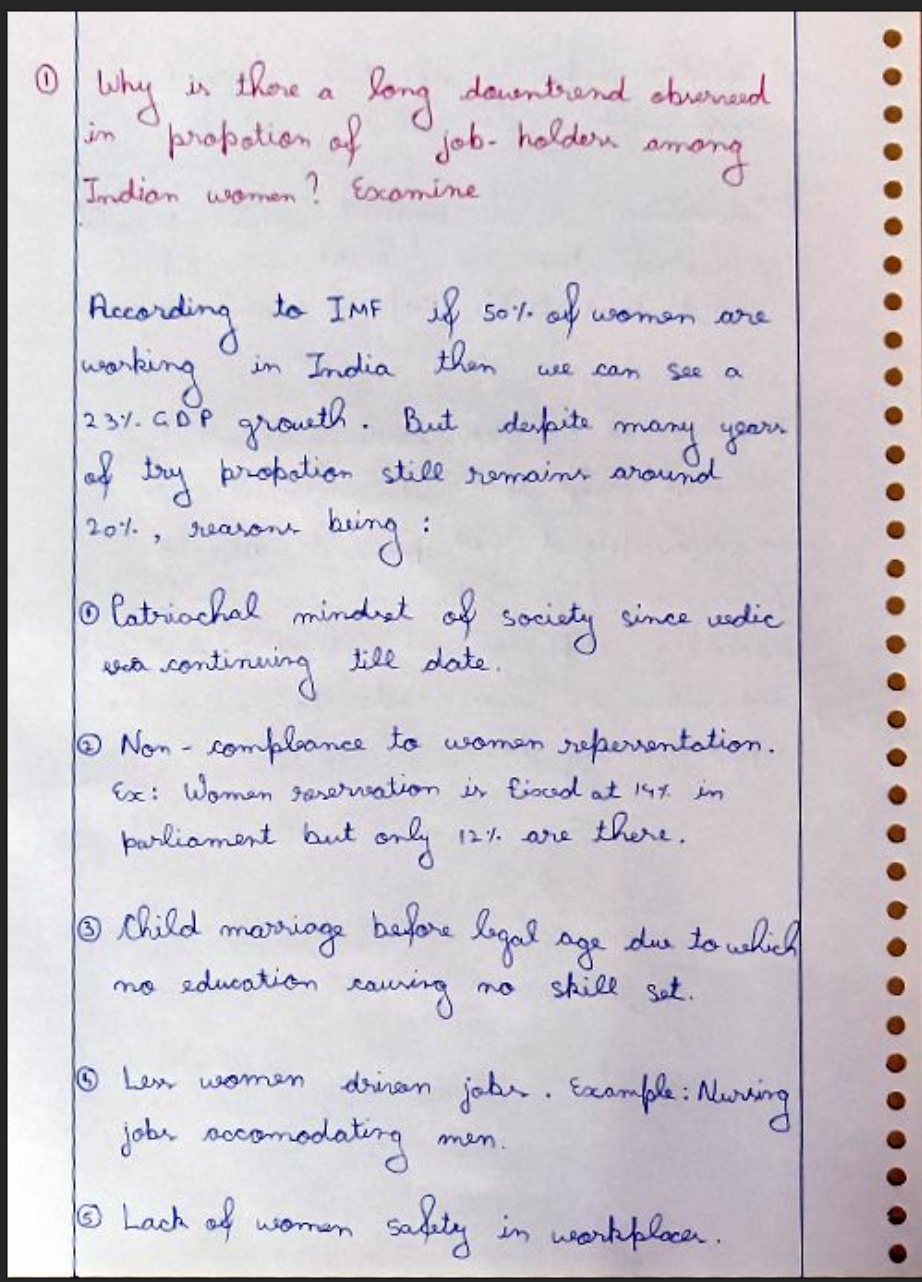 ① Why is there a long downtrend observed
in propotion of job-holders among
Indian women? Examine
According to IMF if 50% of women are
working in India then we can see a
23% GDP growth. But despite many years
of try propotion still remains around
20%, reasons being:
① Patriachal mindset of society since vedic
era continuing till date.
② Non-compleance to women repersentation.
Ex: Women reservation is fixed at 14% in
parliament but only 12% are there.
③ Child marriage before legal age due to which
no education causing no skill set.
④ Less women driven jobs. Example: Nursing
jobs accomodating men.
⑤ Lack of women safety in workplaces.